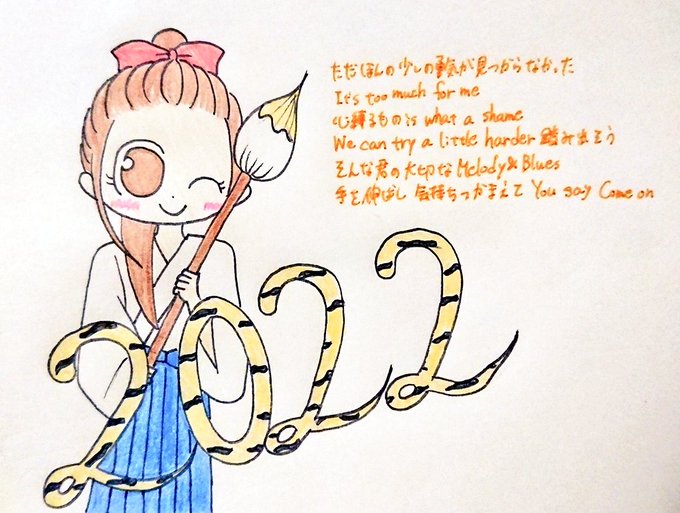 ただほんの少しの勇気が見つからなかった
It's too much for me
心縛るもの is what a shame
We can try a little harder 踏み出そう
そんな君の大切な Melody & Blues
手を伸ばし 気持ちつかまえて You say Come on
2022